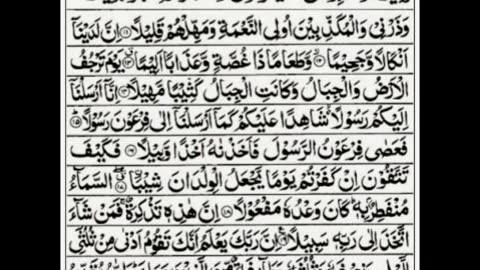 وَذَرْنِيْ وَالْمُكَذِّبِيْنَ اُولِى النَّعْمَةِ وَمَهِّلْهُمْ قَلِيْلًا ⑪ اِنَّ لَدَيْنَاۤ
اَنْكَالًا وَّجَحِيْمًا ⑫ وَّطَعَامًا ذَا غُصَّةٍ وَّعَذَابًا اَلِيْمًا ⑬ يَوْمَ تَرْجُفُ
الْاَرْضُ وَالْجِبَالُ وَكَانَتِ الْجِبَالُ كَثِيْبًا مَّهِيْلًا ⑭ اِنَّاۤ اَرْسَلْنَاۤ
اِلَيْكُمْ رَسُوْلًا شَاهِدًا عَلَيْكُمْ كَمَاۤ اَرْسَلْنَاۤ اِلٰى فِرْعَوْنَ رَسُوْلًا ⑮
فَعَصٰى فِرْعَوْنُ الرَّسُوْلَ فَاَخَذْنٰهُ اَخْذًا وَّبِيْلًا ⑯ فَكَيْفَ
تَتَّقُوْنَ اِنْ كَفَرْتُمْ يَوْمًا يَّجْعَلُ الْوِلْدَانَ شِيْبًا ⑰ السَّمَآءُ
مُنْفَطِرٌۢ بِهٖ كَانَ وَعْدُهٗ مَفْعُوْلًا ⑱ اِنَّ هٰذِهٖ تَذْكِرَةٌ فَمَنْ شَآءَ
اتَّخَذَ اِلٰى رَبِّهٖ سَبِيْلًا ⑲ اِنَّ رَبَّكَ يَعْلَمُ اَنَّكَ تَقُوْمُ اَدْنٰى مِنْ ثُلُثَىِ